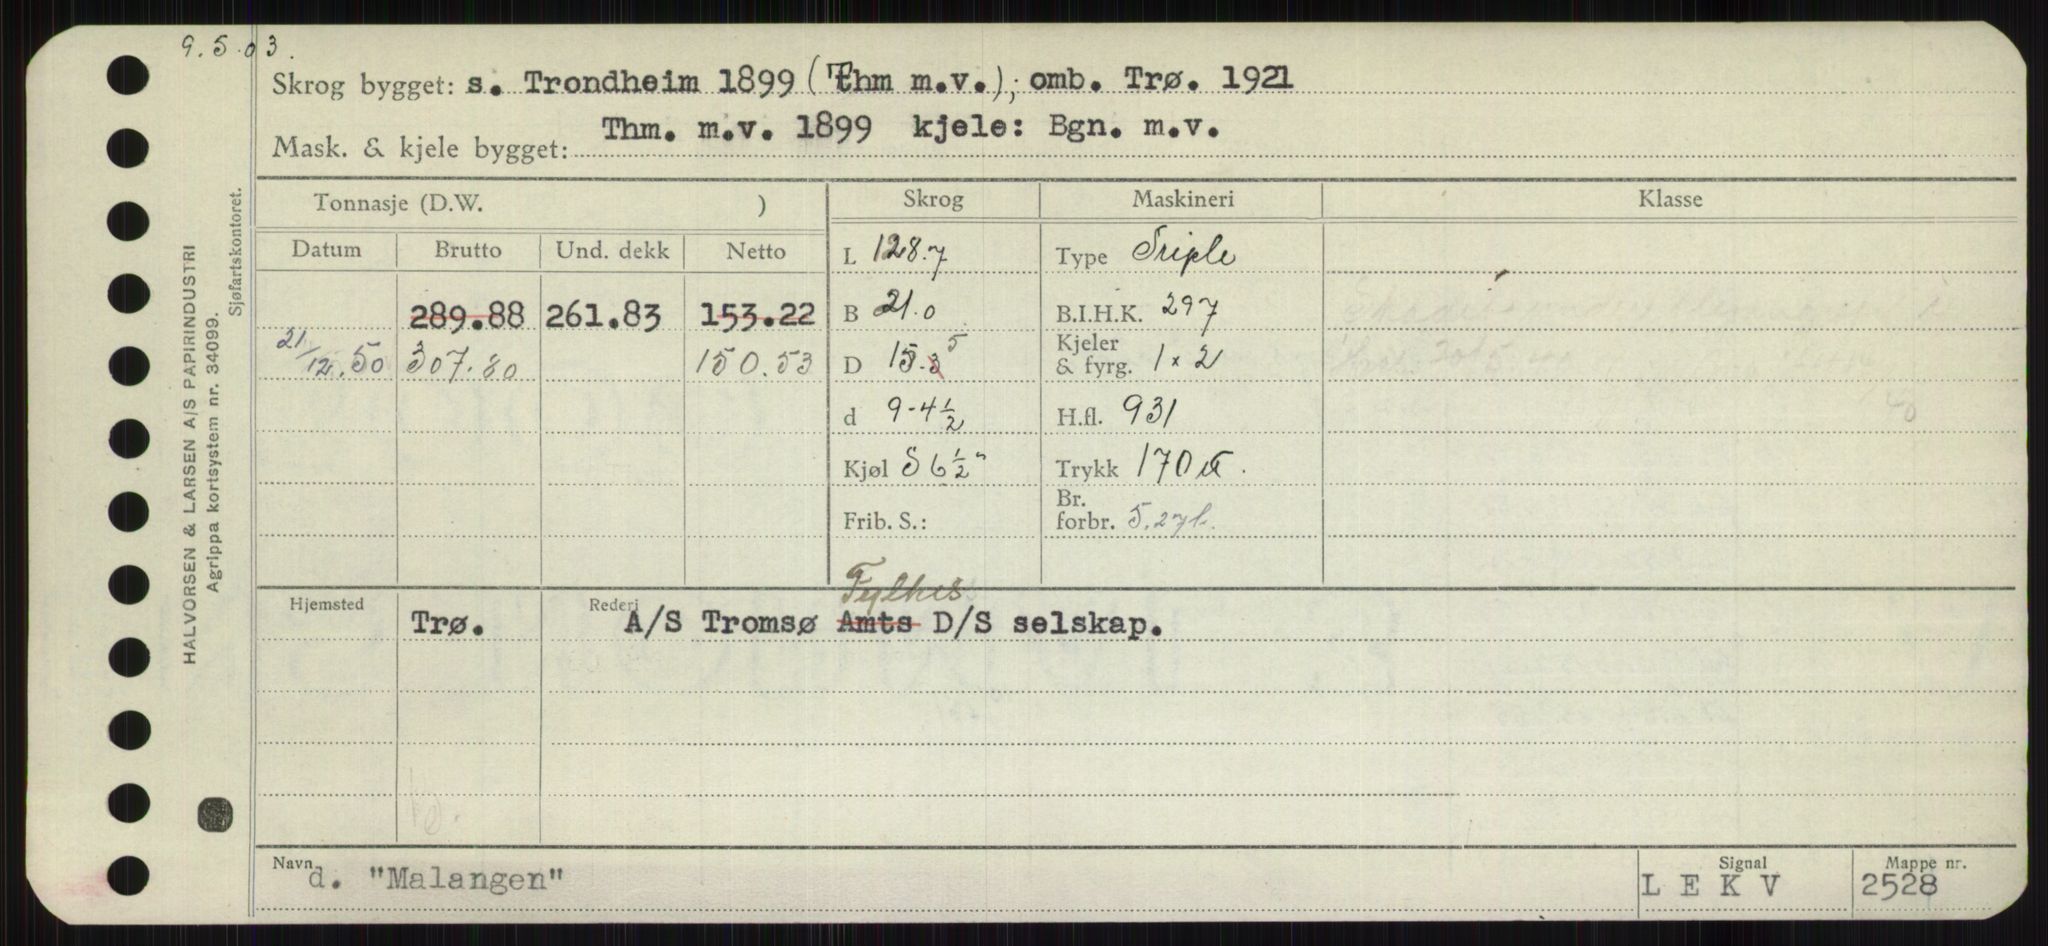 9.5.03.
Skrog bygget: s. Trondheim 1899 (Thm m.v.); omb. Trø. 1921
Mask. & kjele bygget: Thm. m.v. 1899 kjele: Bgn. m.v.
Tonnasje (D.W. ) Skrog Maskineri Klasse
Datum Brutto Und. dekk Netto L 128.7 Type Triple
289.88 261.83 153.22 B 21.0 B.I.H.K. 297
21/12.50 307.80 150.53 D 15.3 5 Kjeler & fyrg. 1 x 2
d 9-4½ H.fl. 931
Kjøl S 6½" Trykk 170 ℔.
Frib. S.: Br. forbr. 5.
Hjemsted Rederi Fylkes
Trø. A/S Tromsø Amts D/S selskap.
Navn Signal Mappe nr.
d. "Malangen" L E K V 2528
HALVORSEN & LARSEN A/S PAPIRINDUSTRI
Agrippa kortsystem nr. 34099.
Sjøfartskontoret.